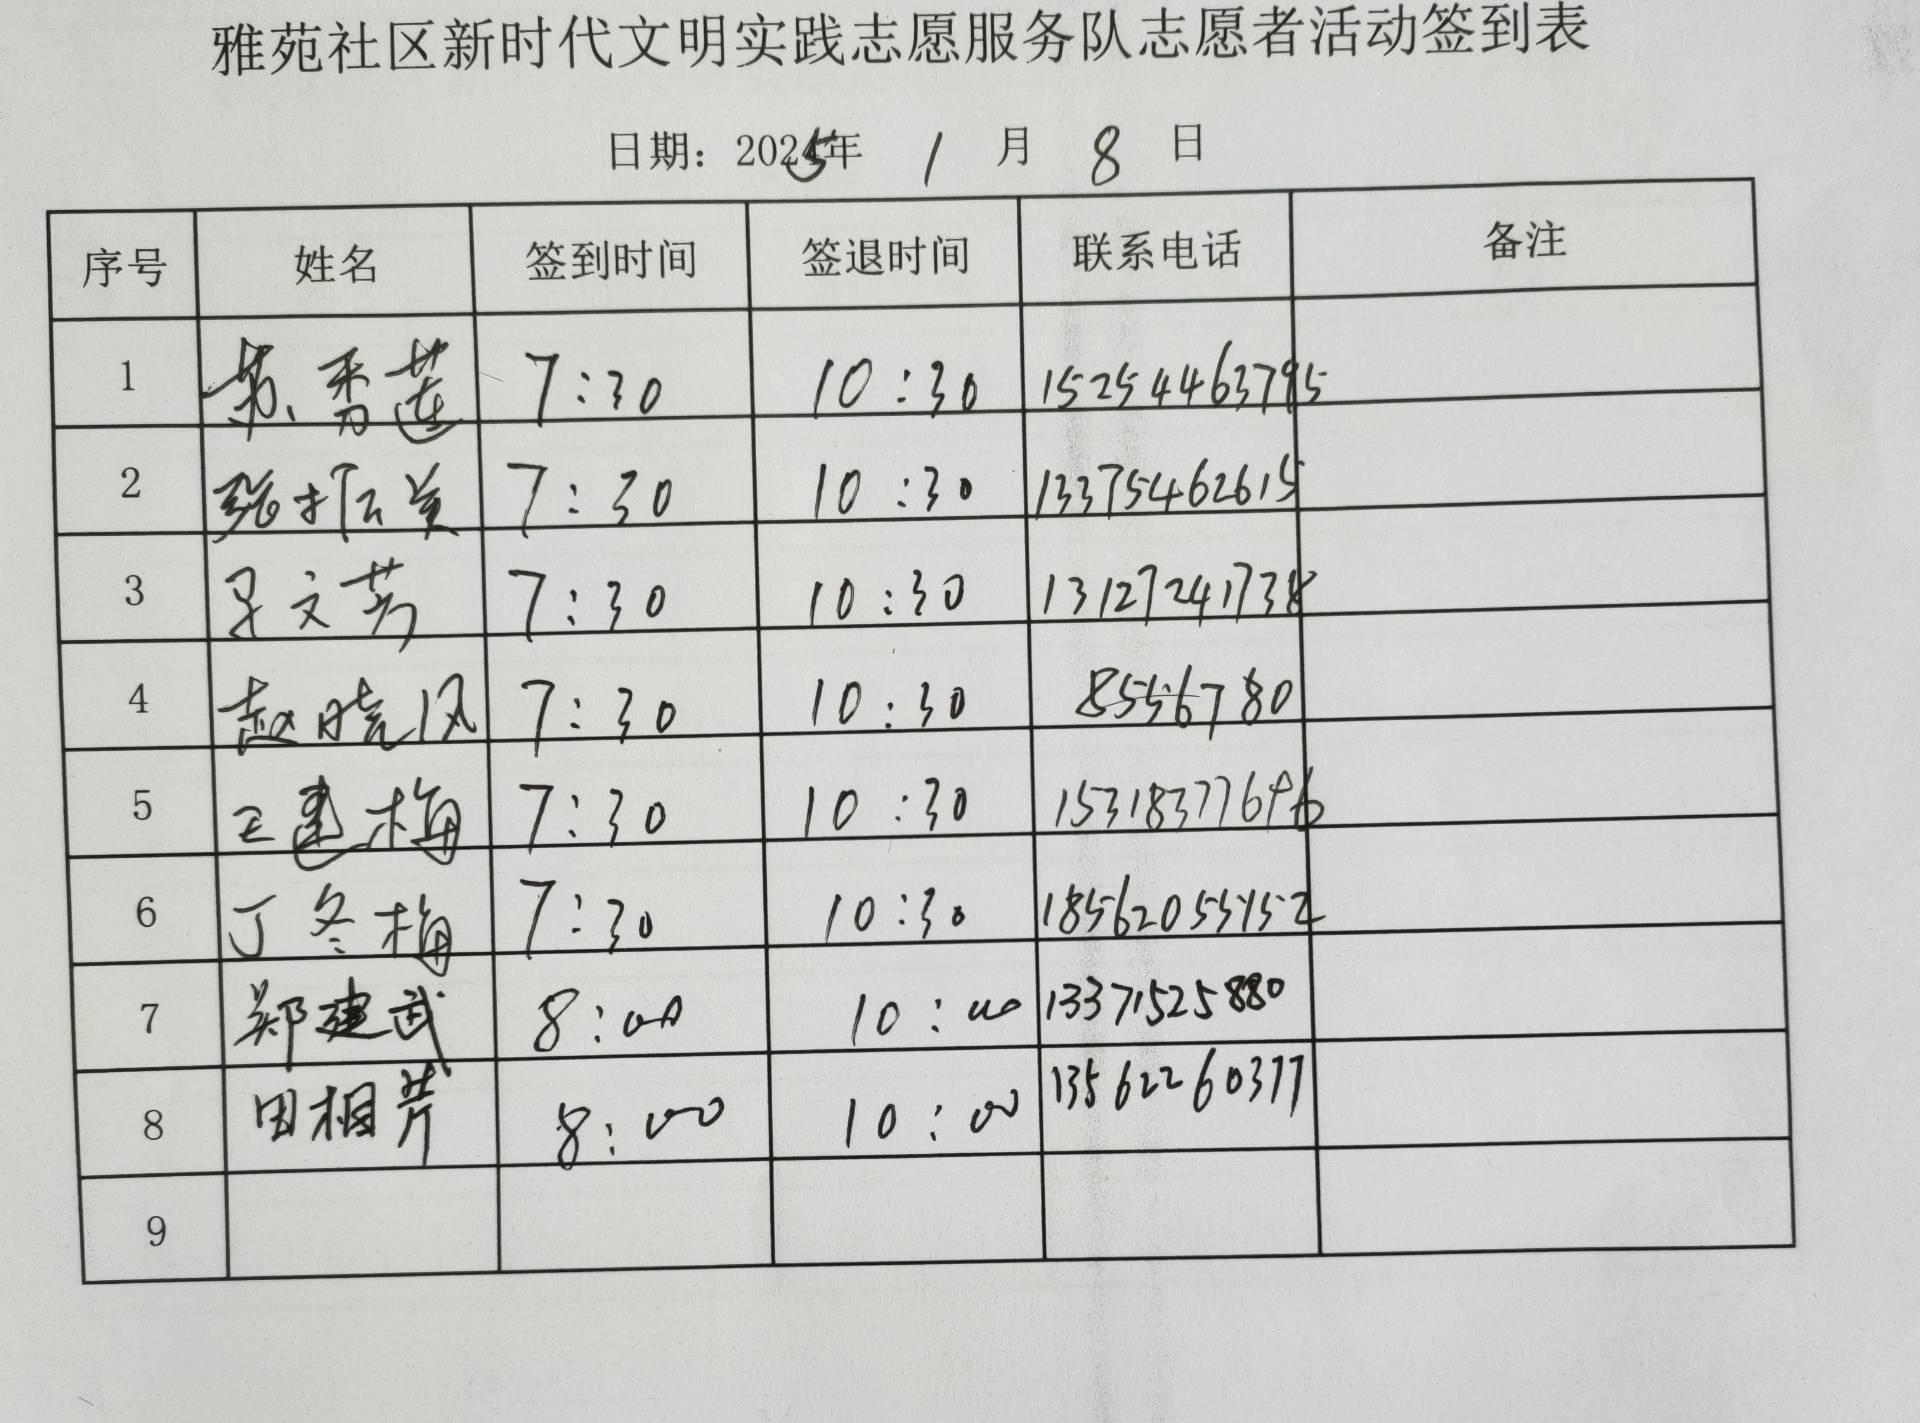 雅苑社区新时代文明实践志愿服务队志愿者活动签到表
日期：2025年 1 月 8 日
序号 姓名 签到时间 签退时间 联系电话 备注
1 苏香莲 7:30 10:30 15254463795
2 7:30 10:30 13375462615
3 文芳 7:30 10:30 13127241738
4 赵晓风 7:30 10:30 8556780
5 王建梅 7:30 10:30
6 丁冬梅 7:30 10:30
7 郑建武 8:00 10:00 13371525880
8 田相芹 8:00 10:00 13562260377
9